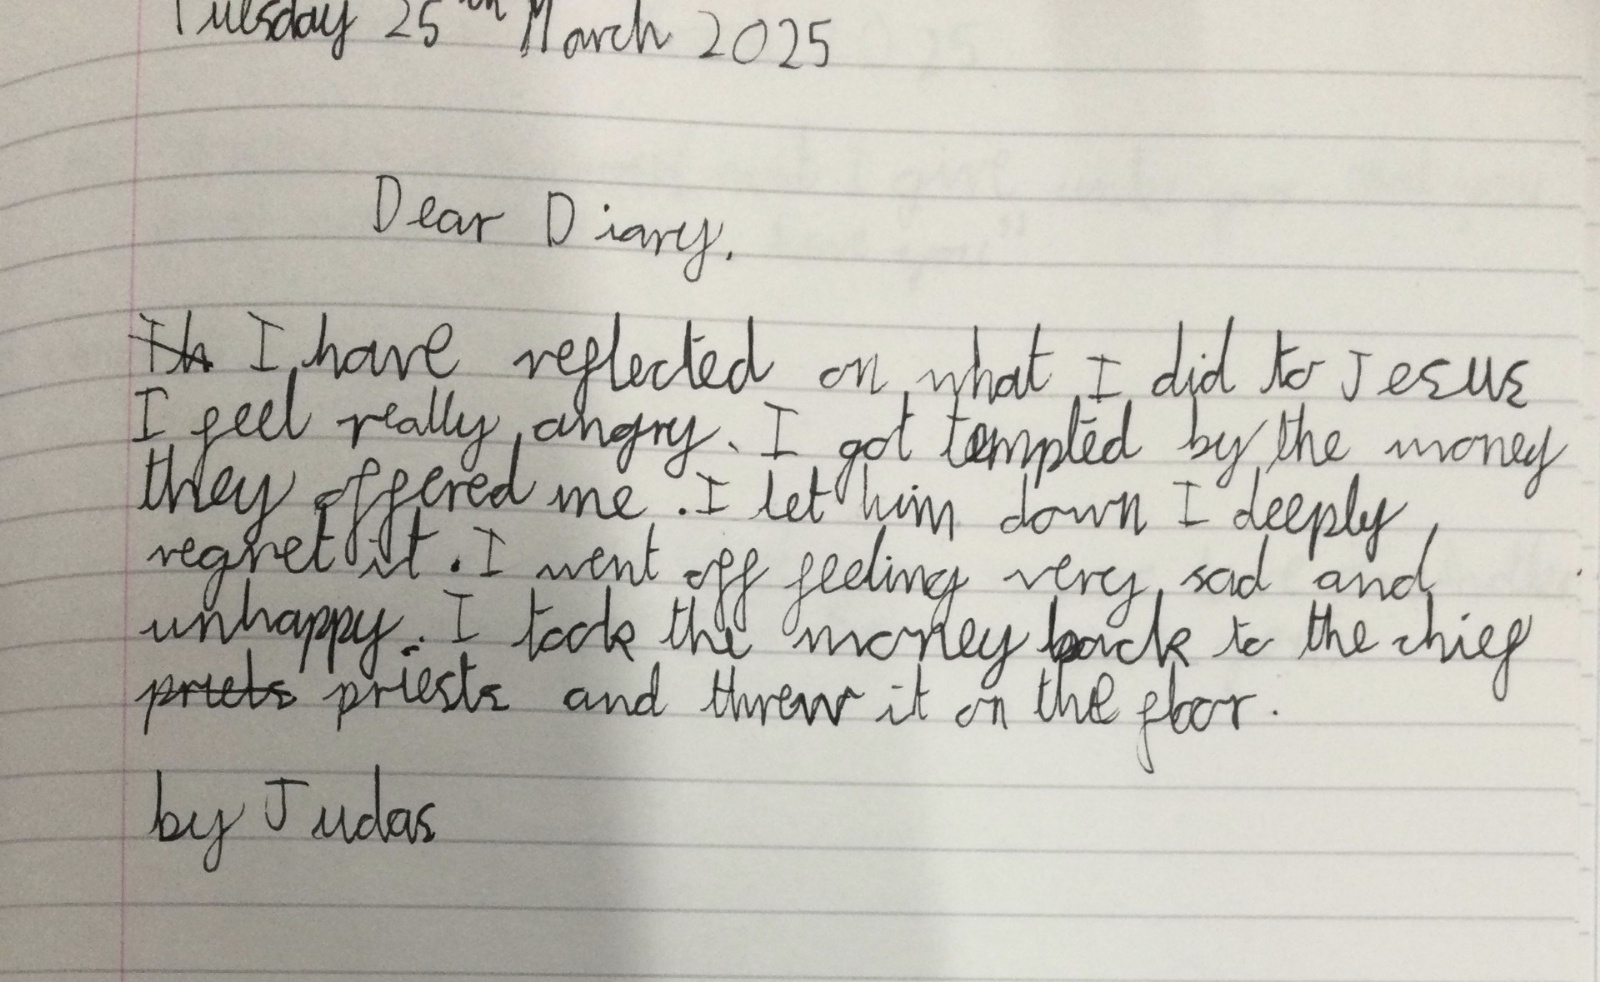 Tuesday 25th March 2025
Dear Diary.
Ih I have reflected on what I did to Jesus
I feel really angry. I got tempted by the money
they offered me. I let him down I deeply
regret it. I went off feeling very sad and
unhappy. I took the money back to the chief
priets priests and threw it on the floor.
by Judas